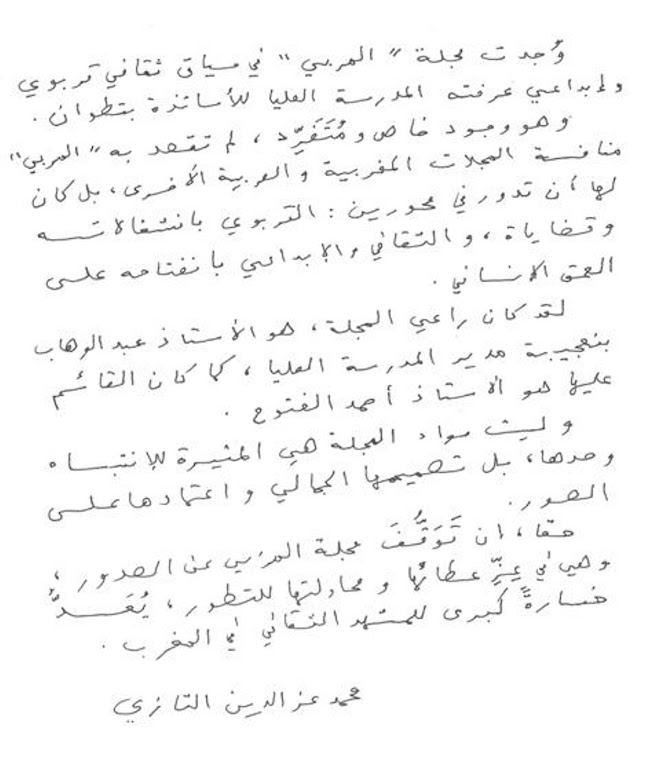 وُجدت مجلة "المربي" في سياق ثقافي تربوي
وإبداعي عرفته المدرسة العليا للأساتذة بتطوان.
وهو وجود خاص ومُتَفَرِّد، لم تقصد به "المربي"
منافسة المجلات المغربية والعربية الأخرى، بل كان
لها أن تدور في محورين: التربوي بانشغالاته
وقضاياه، والثقافي والإبداعي بانفتاحه على
العمق الانساني.
لقد كان راعي المجلة، هو الأستاذ عبد الوهاب
بنعجيبة مدير المدرسة العليا، كما كان القائم
عليها هو الأستاذ أحمد الفتوح.
وليست مواد المجلة هي المثيرة للإنتباه
وحدها، بل تصميمها الجمالي واعتمادها على
الصور.
حقا، ان تَوَقُّفَ مجلة المربي عن الصدور،
وهي في عِزِّ عطائها ومحاولتها للتطور، يُعَدُّ
خسارةً كبرى للمشهد الثقافي في المغرب.
محمد عز الدين التازي